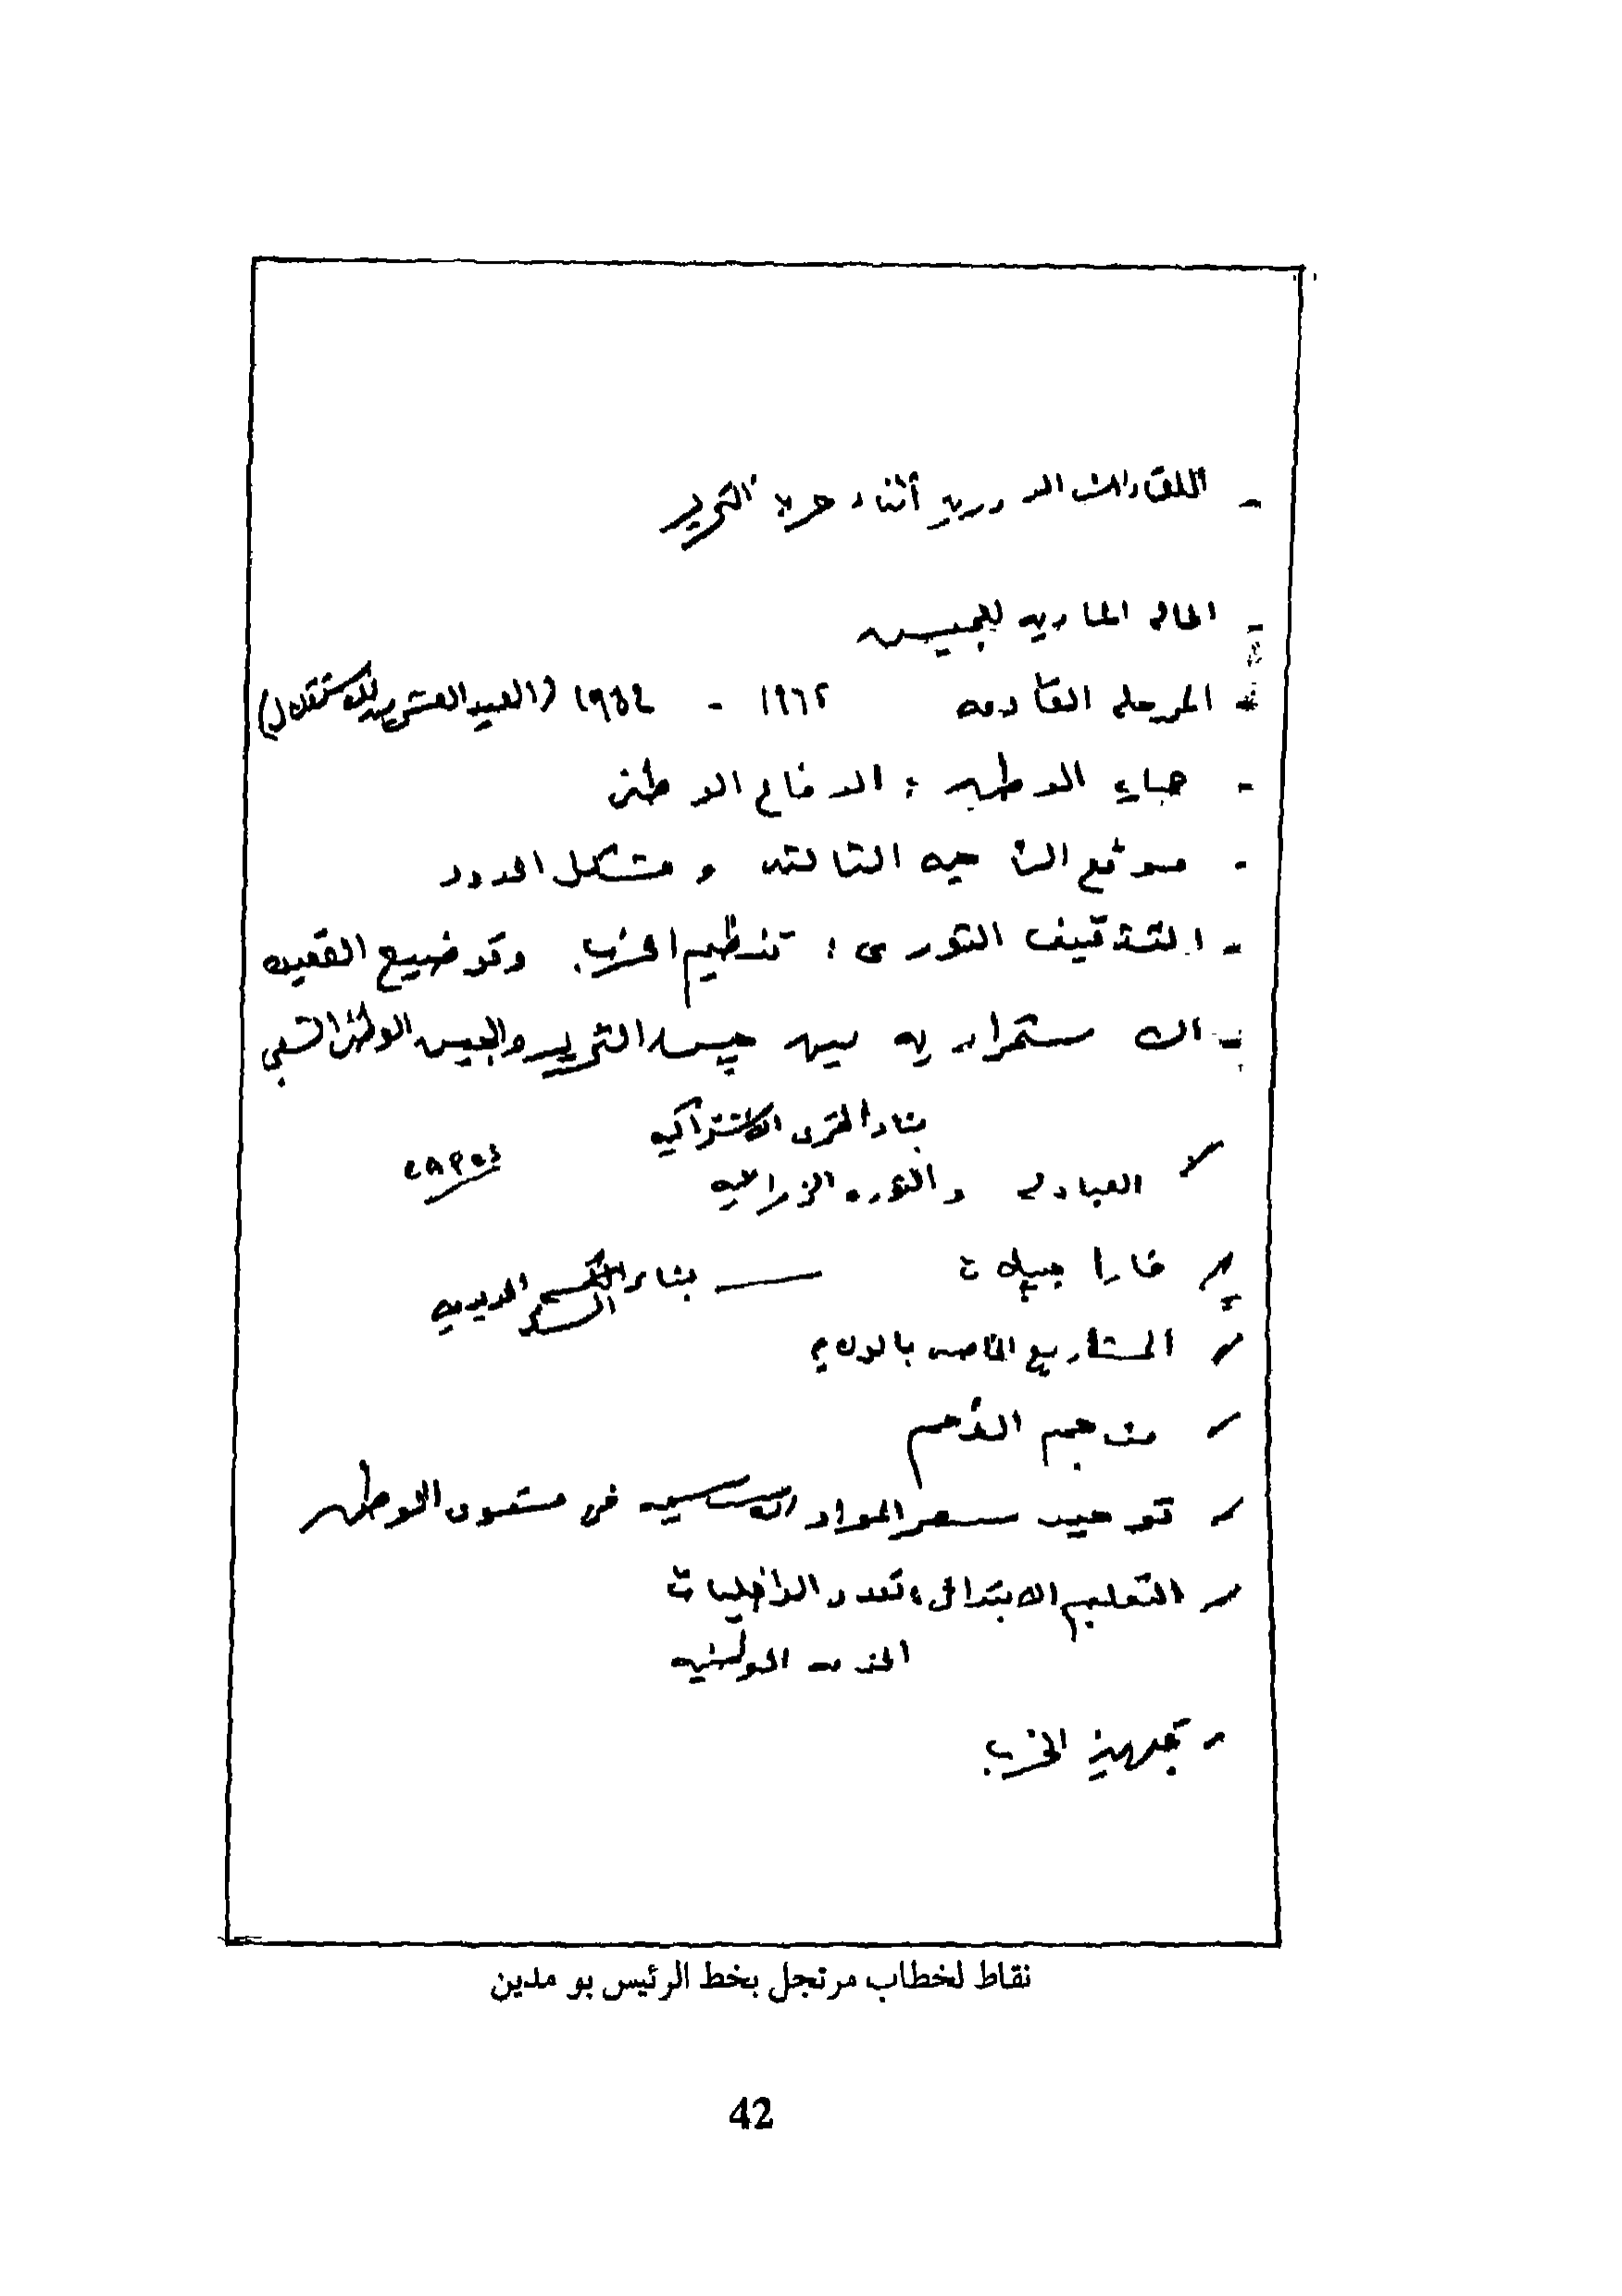 - اللقاءات الدورية أثناء حرب التحرير
- الحالة المادية للجيش
المرحلة القادمة ١٩٦٢ - (العيد العشرين للاستقلال)
- حماية الوطن : الدفاع الوطني
- موقع الناحية الثالثة ومشكل الحدود
- التثقيف الثوري : تنظيم الحزب وتوضيح
- الاستمرارية بين جيش التحرير والجيش الوطني الشعبي
بناء القرى الاشتراكية
العبادلة والثورة الزراعية
غارا جبيلات — بناء السكة الحديدية
المشاريع الخاصة بالولاية
منجم الفحم
توحيد سعر المواد الأساسية في مستوى الوطن
التعليم الابتدائي، تعدد الداخليات
الخدمة الوطنية
- تجهيز الحزب
نقاط لخطاب مرتجل بخط الرئيس بو مدين
42